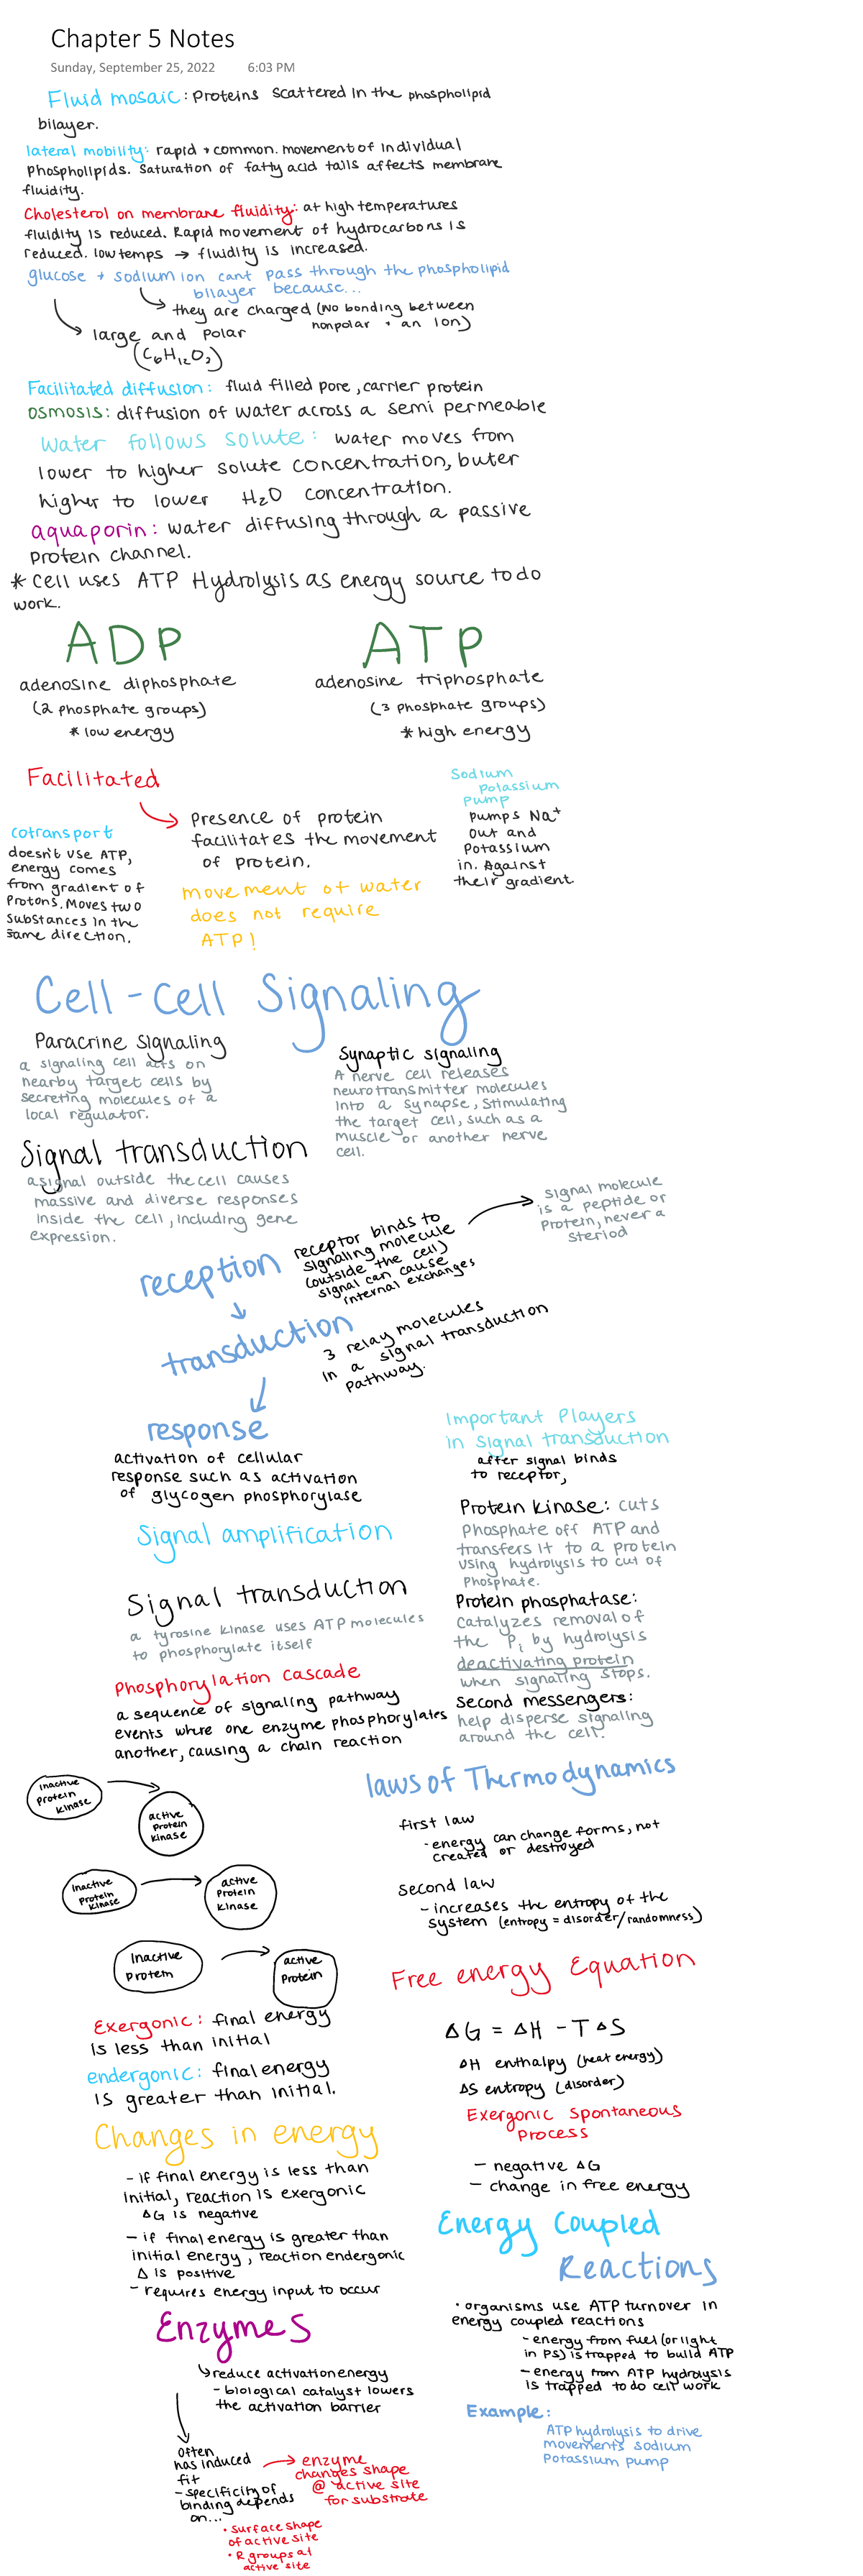 Chapter 5 Notes
Sunday, September 25, 2022 6:03 PM
Fluid mosaic: Proteins scattered in the phospholipid
bilayer.
lateral mobility: rapid + common. movement of individual
phospholipids. Saturation of fatty acid tails affects membrane
fluidity.
Cholesterol on membrane fluidity: at high temperatures
fluidity is reduced. Rapid movement of hydrocarbons is
reduced. low temps → fluidity is increased.
glucose + sodium ion cant pass through the phospholipid
bilayer because...
they are charged (No bonding between
nonpolar + an Ion)
large and polar
(C6H12O2)
Facilitated diffusion: fluid filled pore, carrier protein
osmosis: diffusion of water across a semi permeable
Water follows solute: water moves from
lower to higher solute concentration, buter
higher to lower H2O concentration.
aquaporin: water diffusing through a passive
protein channel.
* Cell uses ATP Hydrolysis as energy source to do
work.
ADP
adenosine diphosphate
(2 phosphate groups)
* low energy
ATP
adenosine triphosphate
(3 phosphate groups)
* high energy
Facilitated
Presence of protein
facilitates the movement
of protein.
movement of water
does not require
ATP!
cotransport
doesn't use ATP,
energy comes
from gradient of
Protons. Moves two
substances in the
same direction.
Sodium
potassium
Pump
pumps Na+
out and
Potassium
in. Against
their gradient.
Cell-cell Signaling
Paracrine Signaling
a signaling cell acts on
nearby target cells by
secreting molecules of a
local regulator.
Synaptic signaling
A nerve cell releases
neurotransmitter molecules
into a synapse, stimulating
the target cell, such as a
muscle or another nerve
cell.
Signal transduction
a signal outside the cell causes
massive and diverse responses
inside the cell, including gene
expression.
reception
receptor binds to
signaling molecule
(outside the cell)
signal can cause
internal exchanges
signal molecule
is a peptide or
protein, never a
steriod
transduction
3 relay molecules
in a signal transduction
pathway.
response
activation of cellular
response such as activation
of glycogen phosphorylase
Important Players
in signal transduction
after signal binds
to receptor,
Protein kinase: cuts
Phosphate off ATP and
transfers it to a protein
using hydrolysis to cut of
Phosphate.
Protein phosphatase:
catalyzes removal of
the Pi by hydrolysis
deactivating protein
when signaling stops.
Second messengers:
help disperse signaling
around the cell.
Signal amplification
Signal transduction
a tyrosine kinase uses ATP molecules
to phosphorylate itself
Phosphorylation cascade
a sequence of signaling pathway
events where one enzyme phosphorylates
another, causing a chain reaction
inactive
protein
kinase
active
protein
kinase
inactive
protein
kinase
active
Protein
kinase
Inactive
protein
active
Protein
laws of Thermodynamics
first law
- energy can change forms, not
created or destroyed
second law
- increases the entropy of the
system (entropy = disorder/randomness)
Free energy Equation
ΔG = ΔH - TΔS
ΔH enthalpy (heat energy)
ΔS entropy (disorder)
Exergonic spontaneous
process
- negative ΔG
- change in free energy
Exergonic: final energy
is less than initial
endergonic: final energy
is greater than initial.
Changes in energy
- if final energy is less than
initial, reaction is exergonic
ΔG is negative
- if final energy is greater than
initial energy, reaction endergonic
Δ is positive
- requires energy input to occur
Energy Coupled
Reactions
• organisms use ATP turnover in
energy coupled reactions
- energy from fuel (or light
in PS) is trapped to build ATP
- energy from ATP hydrolysis
is trapped to do cell work
Example:
ATP hydrolysis to drive
movements sodium
Potassium pump
Enzymes
reduce activation energy
- biological catalyst lowers
the activation barrier
often
has induced
fit
- specificity of
binding depends
on...
enzyme
changes shape
@ active site
for substrate
• surface shape
of active site
• R groups at
active site